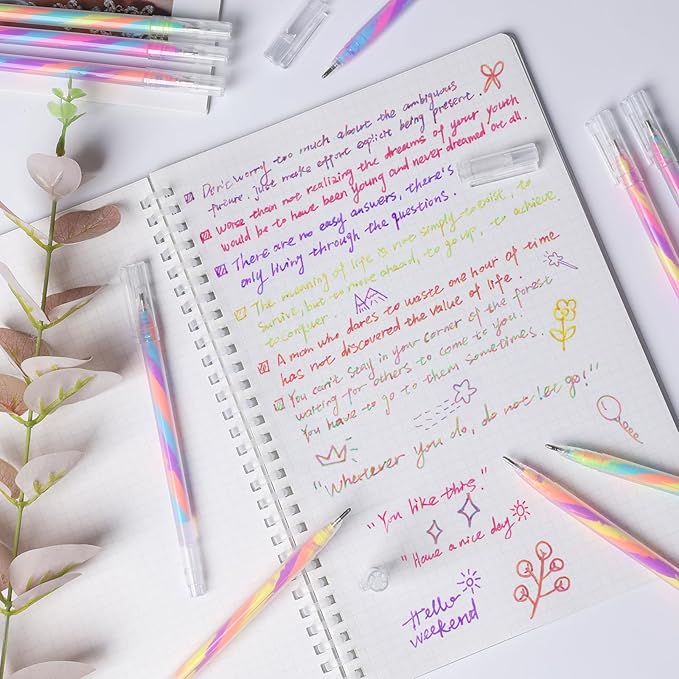 Don't worry too much about the ambiguous
future, just make effort explicit being present.
Worse than not realizing the dreams of your youth
would be to have been young and never dreamed at all.
There are no easy answers, there's
only living through the questions.
The meaning of life is not simply to exist, to
survive, but to move ahead, to go up, to achieve,
to conquer.
A man who dares to waste one hour of time
has not discovered the value of life.
You can't stay in your corner of the forest
waiting for others to come to you!
You have to go to them sometimes.
"Whatever you do, do not let go!"
"You like this."
"Have a nice day
Hello
weekend